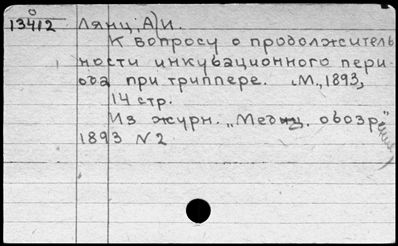 О
13412 Лянц, А) И.
К вопросу о продолжитель
ности инкубационного пери-
ода при триппере. М., 1893,
14 стр.
Из журн. „Медиц. обозр."
1893 N 2